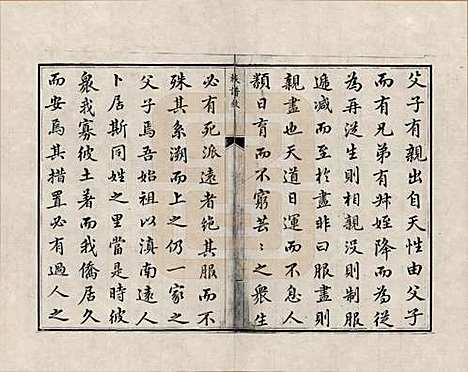 父子有親出自天性由父子
而有兄弟有叔姪降而為從
為再從生則相親沒則制服
遞減而至於盡非曰服盡則
親盡也天道日運而不息人
類日育而不窮芸〻之眾生
族譜敘
必有死派遠者絕其服而不
殊其系溯而上之仍一家之
父子焉吾始祖以滇南遠人
卜居斯同姓之里當是時彼
衆我寡彼土著而我僑居久
而安焉其措置必有過人之